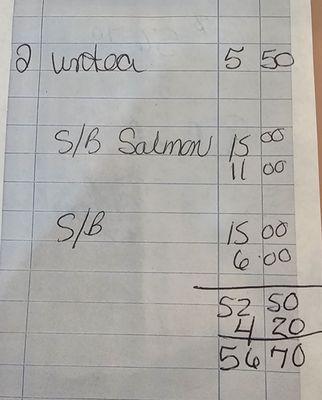 2 untea 5 50
S/B Salmon 15 00
11 00
S/B 15 00
6.00
52 50
4 20
56 70